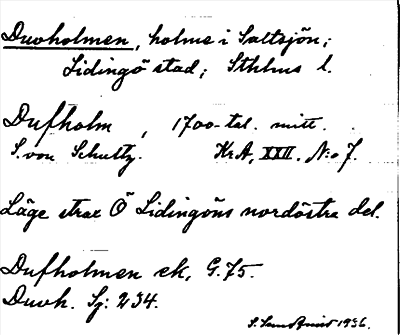 Duvholmen, holme i Saltsjön;
Lidingö stad; Sthlms l.
Dufholm, 1700-tal. mitt.
S. von Schultz. Kr.A, XXII. No 7.
Läge strax Ö Lidingöns nordöstra del.
Dufholmen ek, G.75.
Duvh. Sj: 234.
S. Sundqvist 1936.